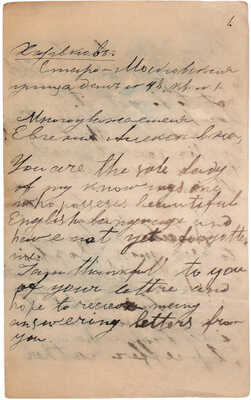 6
Харьковъ.
Старо-Московская
улица домъ № 98, кв. № 1.
Многоуважаемая
Евгения Алексеевна,
You are the sole lady
of my knowings, ong
who posseses beautiful
English language and
have not yet forgotten
me.
I am thankful to you
of your lettre and
hope to recieve many
answering letters from
you.